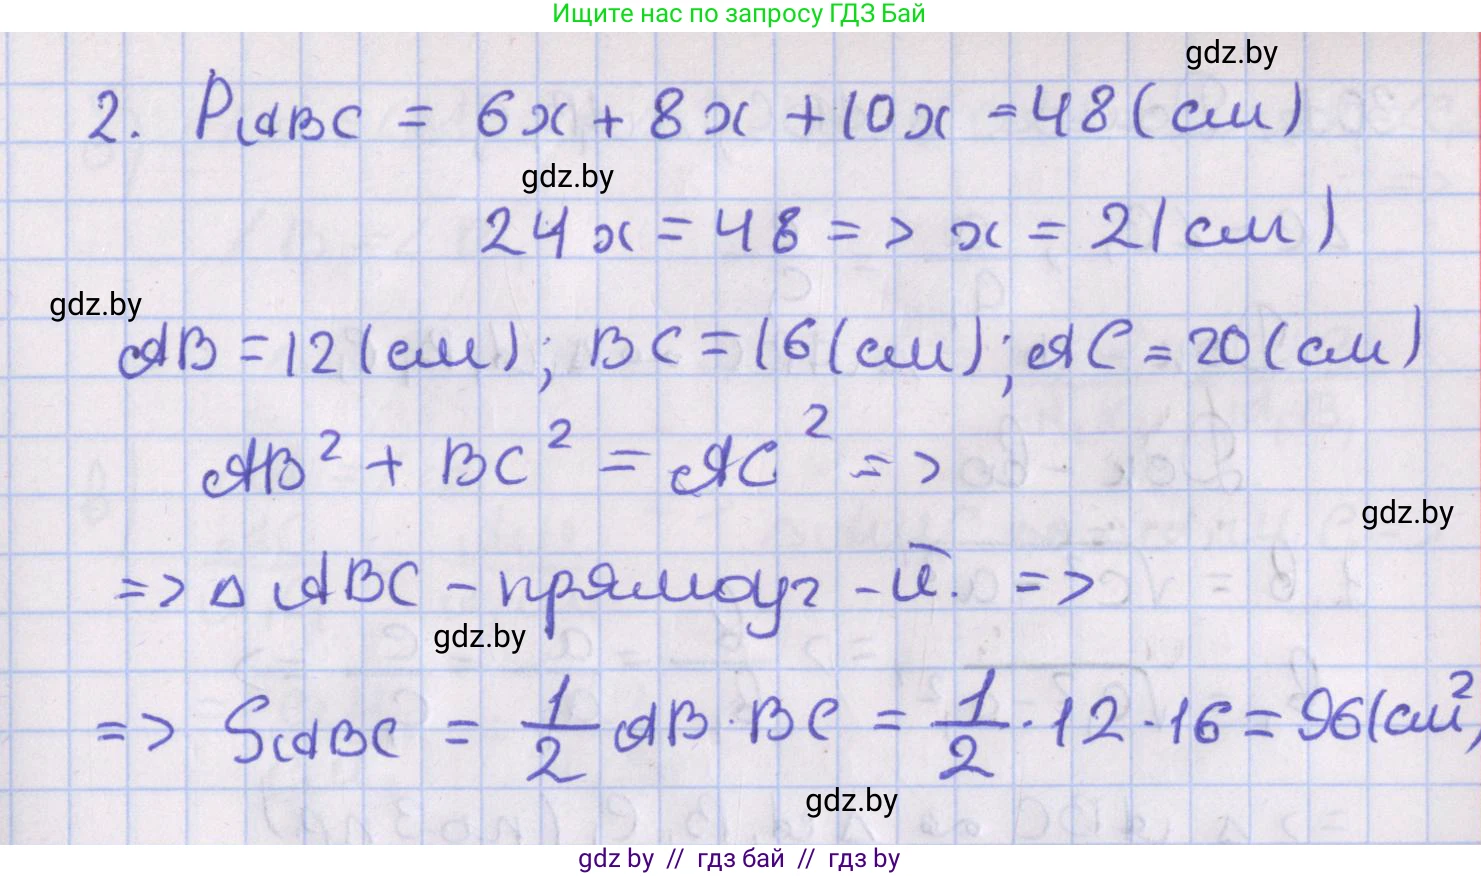 Ищите нас по запросу ГДЗ Бай
gdz.by
2. P_{ABC} = 6x + 8x + 10x = 48 (см)
gdz.by
24x = 48 => x = 2 (см)
gdz.by
AB = 12 (см); BC = 16 (см); AC = 20 (см)
AB² + BC² = AC² =>
gdz.by
=> △ ABC - прямоуг-й. =>
gdz.by
=> S_{ABC} = 1/2 AB · BC = 1/2 · 12 · 16 = 96 (см²)
gdz.by
gdz by // гдз бай // гдз by